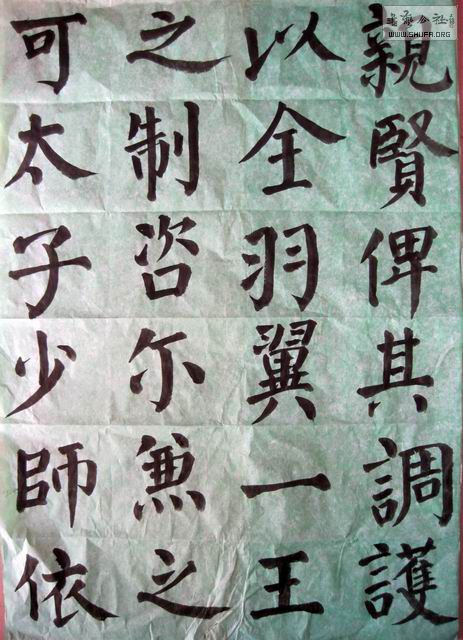 親賢俾其調護
以全羽翼一王
之制咨尔兼之
可太子少師依
書法公社
www.SHUFA.ORG